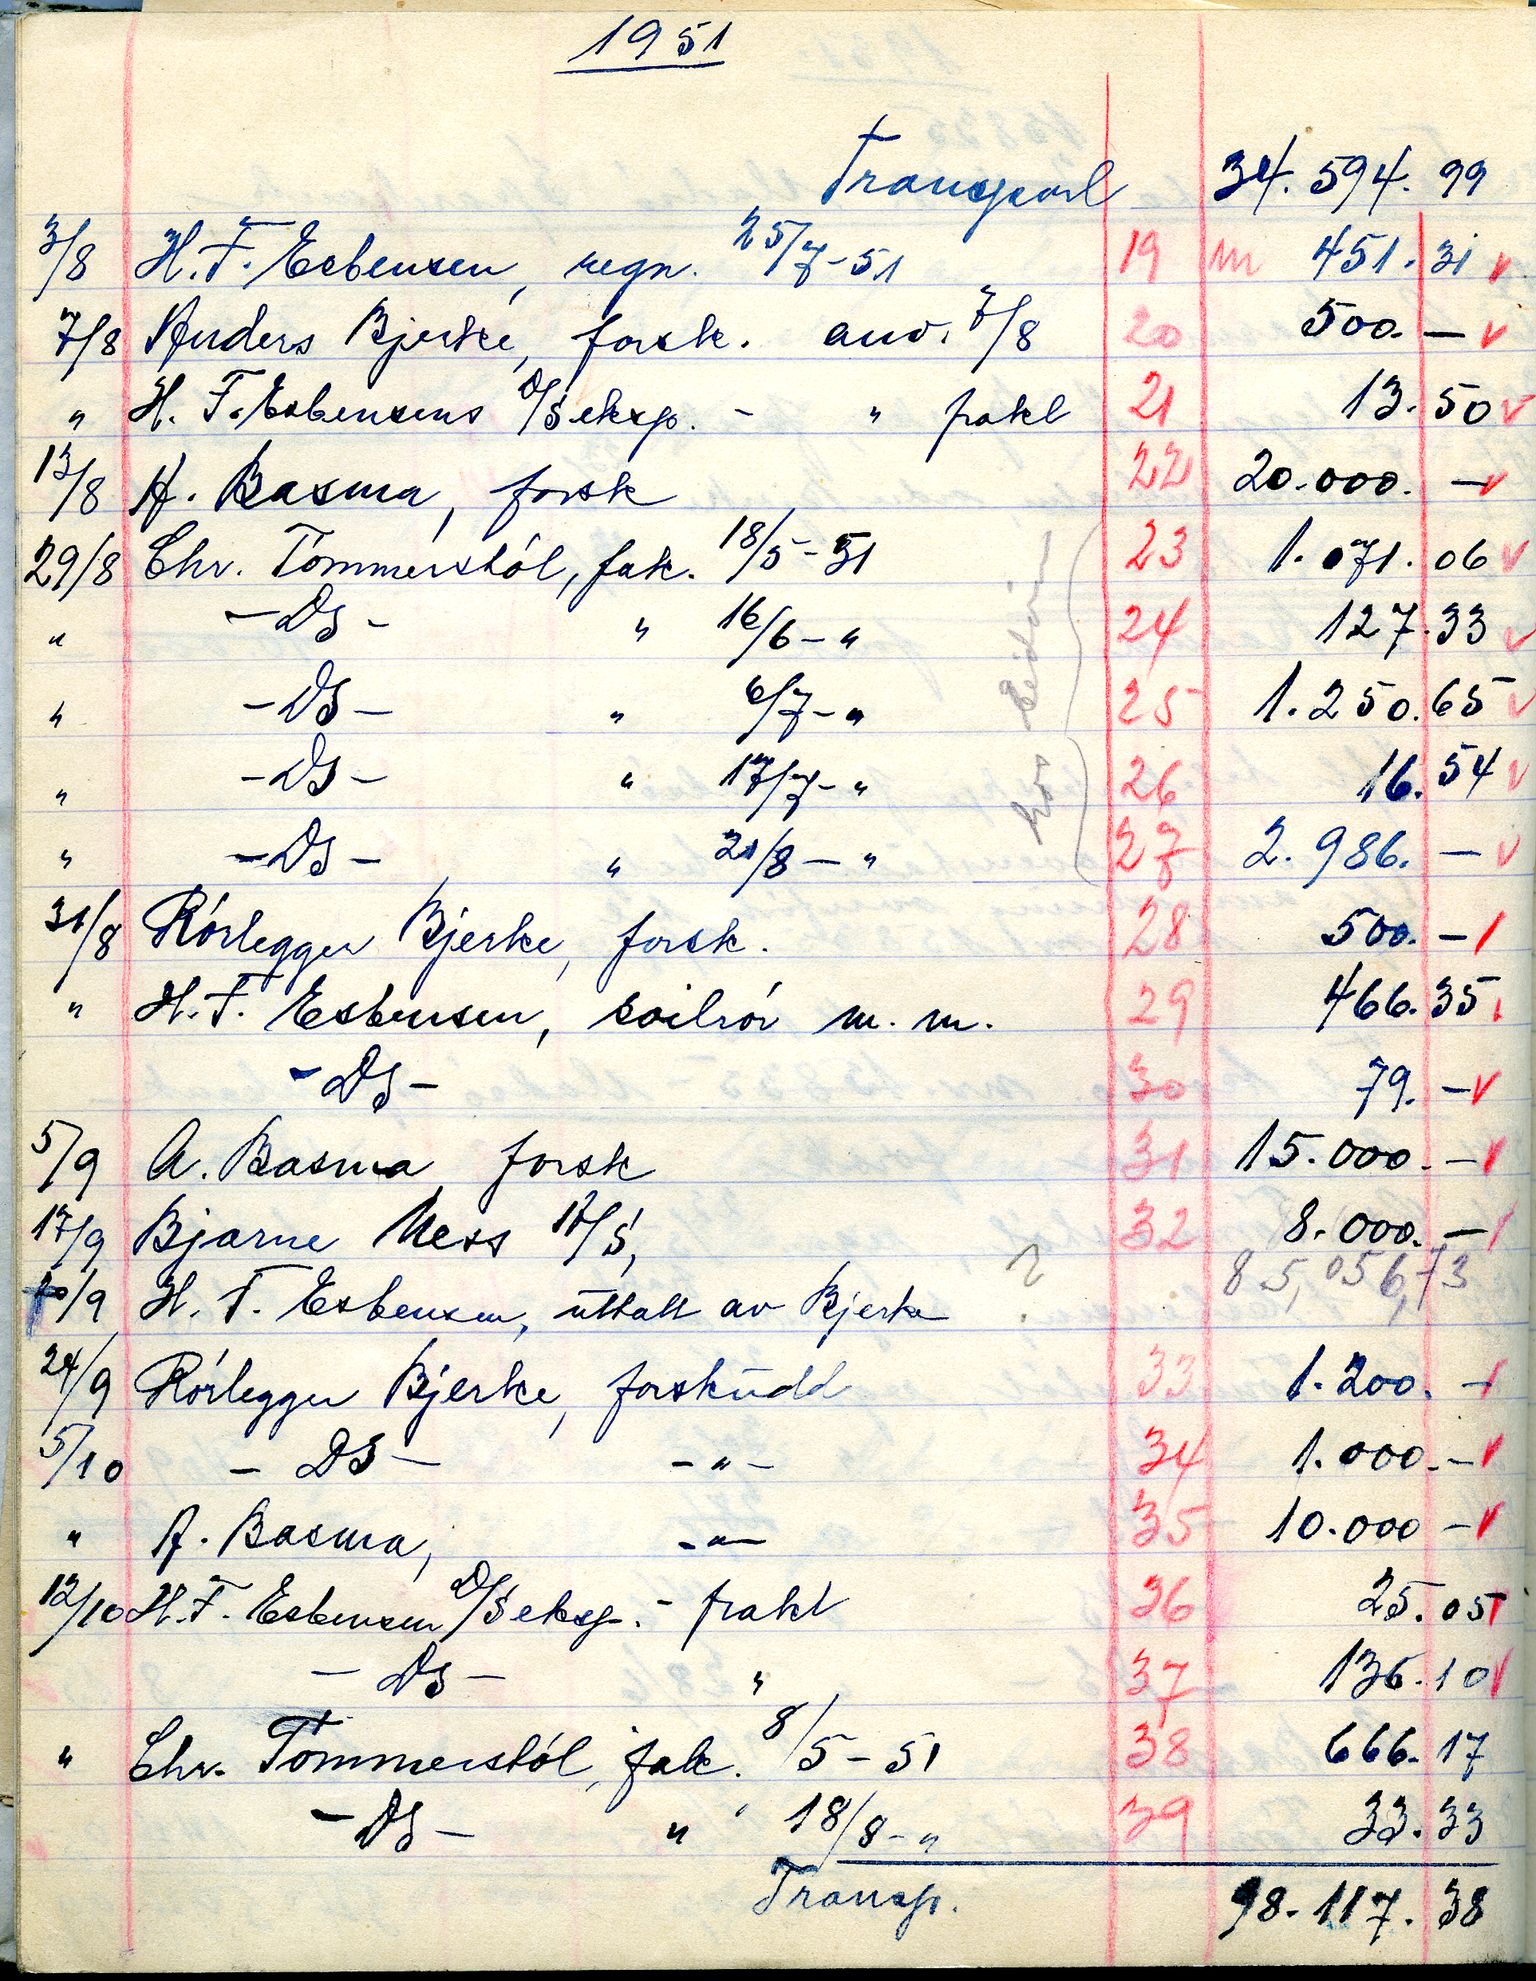 1951
Transport 34.594.99
3/8 H. F. Esbensen, regn. 25/7-51 19 m 451.31 v
7/8 Anders Bjerke, forsk. anv. 7/8 20 500.— v
" H. F. Esbensens D/S eksp. - " frakt 21 13.50 v
13/8 A. Basma, forsk 22 20.000.— v
29/8 Chr. Tømmerstøl, fak. 18/5-51 23 1.071.06 v
" —DS— " 16/6—" 24 127.33 v
" —DS— " 6/7—" 25 1.250.65 v
" —DS— " 17/7—" 26 16.54 v
" —DS— " 21/8—" 27 2.986.— v
hos
31/8 Rørlegger Bjerke, forsk. 28 500.—
" H. F. Esbensen, soilrør m. m. 29 466.35
—DS— 30 79.— v
5/9 A. Basma forsk 31 15.000.— v
17/9 Bjarne Ness 32 8.000.—
85,056,73
/9 H. F. Esbensen, uttatt av Bjerke ?
24/9 Rørlegger Bjerke, forskudd 33 1.200.— v
5/10 — DS — —"— 34 1.000.— v
" A. Basma, —"— 35 10.000 — v
12/10 H. F. Esbensen D/S eksp. - frakt 36 25.05
— DS — " 37 136.10 v
" Chr. Tømmerstøl, fak. 8/5-51 38 666.17
—DS— " 18/8-" 39 33.33
Transp. 98.117.38